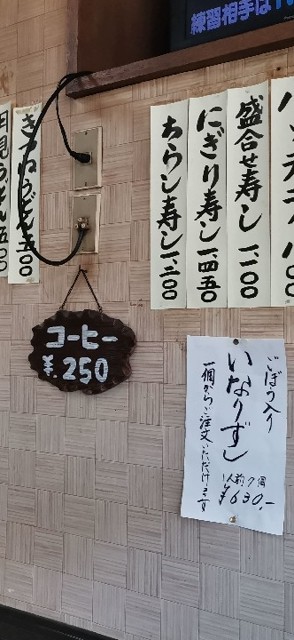 練習相手は
盛合せ寿し 一、一〇〇
にぎり寿し 一、四五〇
ちらし寿し 一、二〇〇
きつねうどん 五〇〇
月見うどん 五〇〇
コーヒー
¥.250
ごぼう入り
いなりずし
1人前7個
¥630-
一個からご注文いただけます